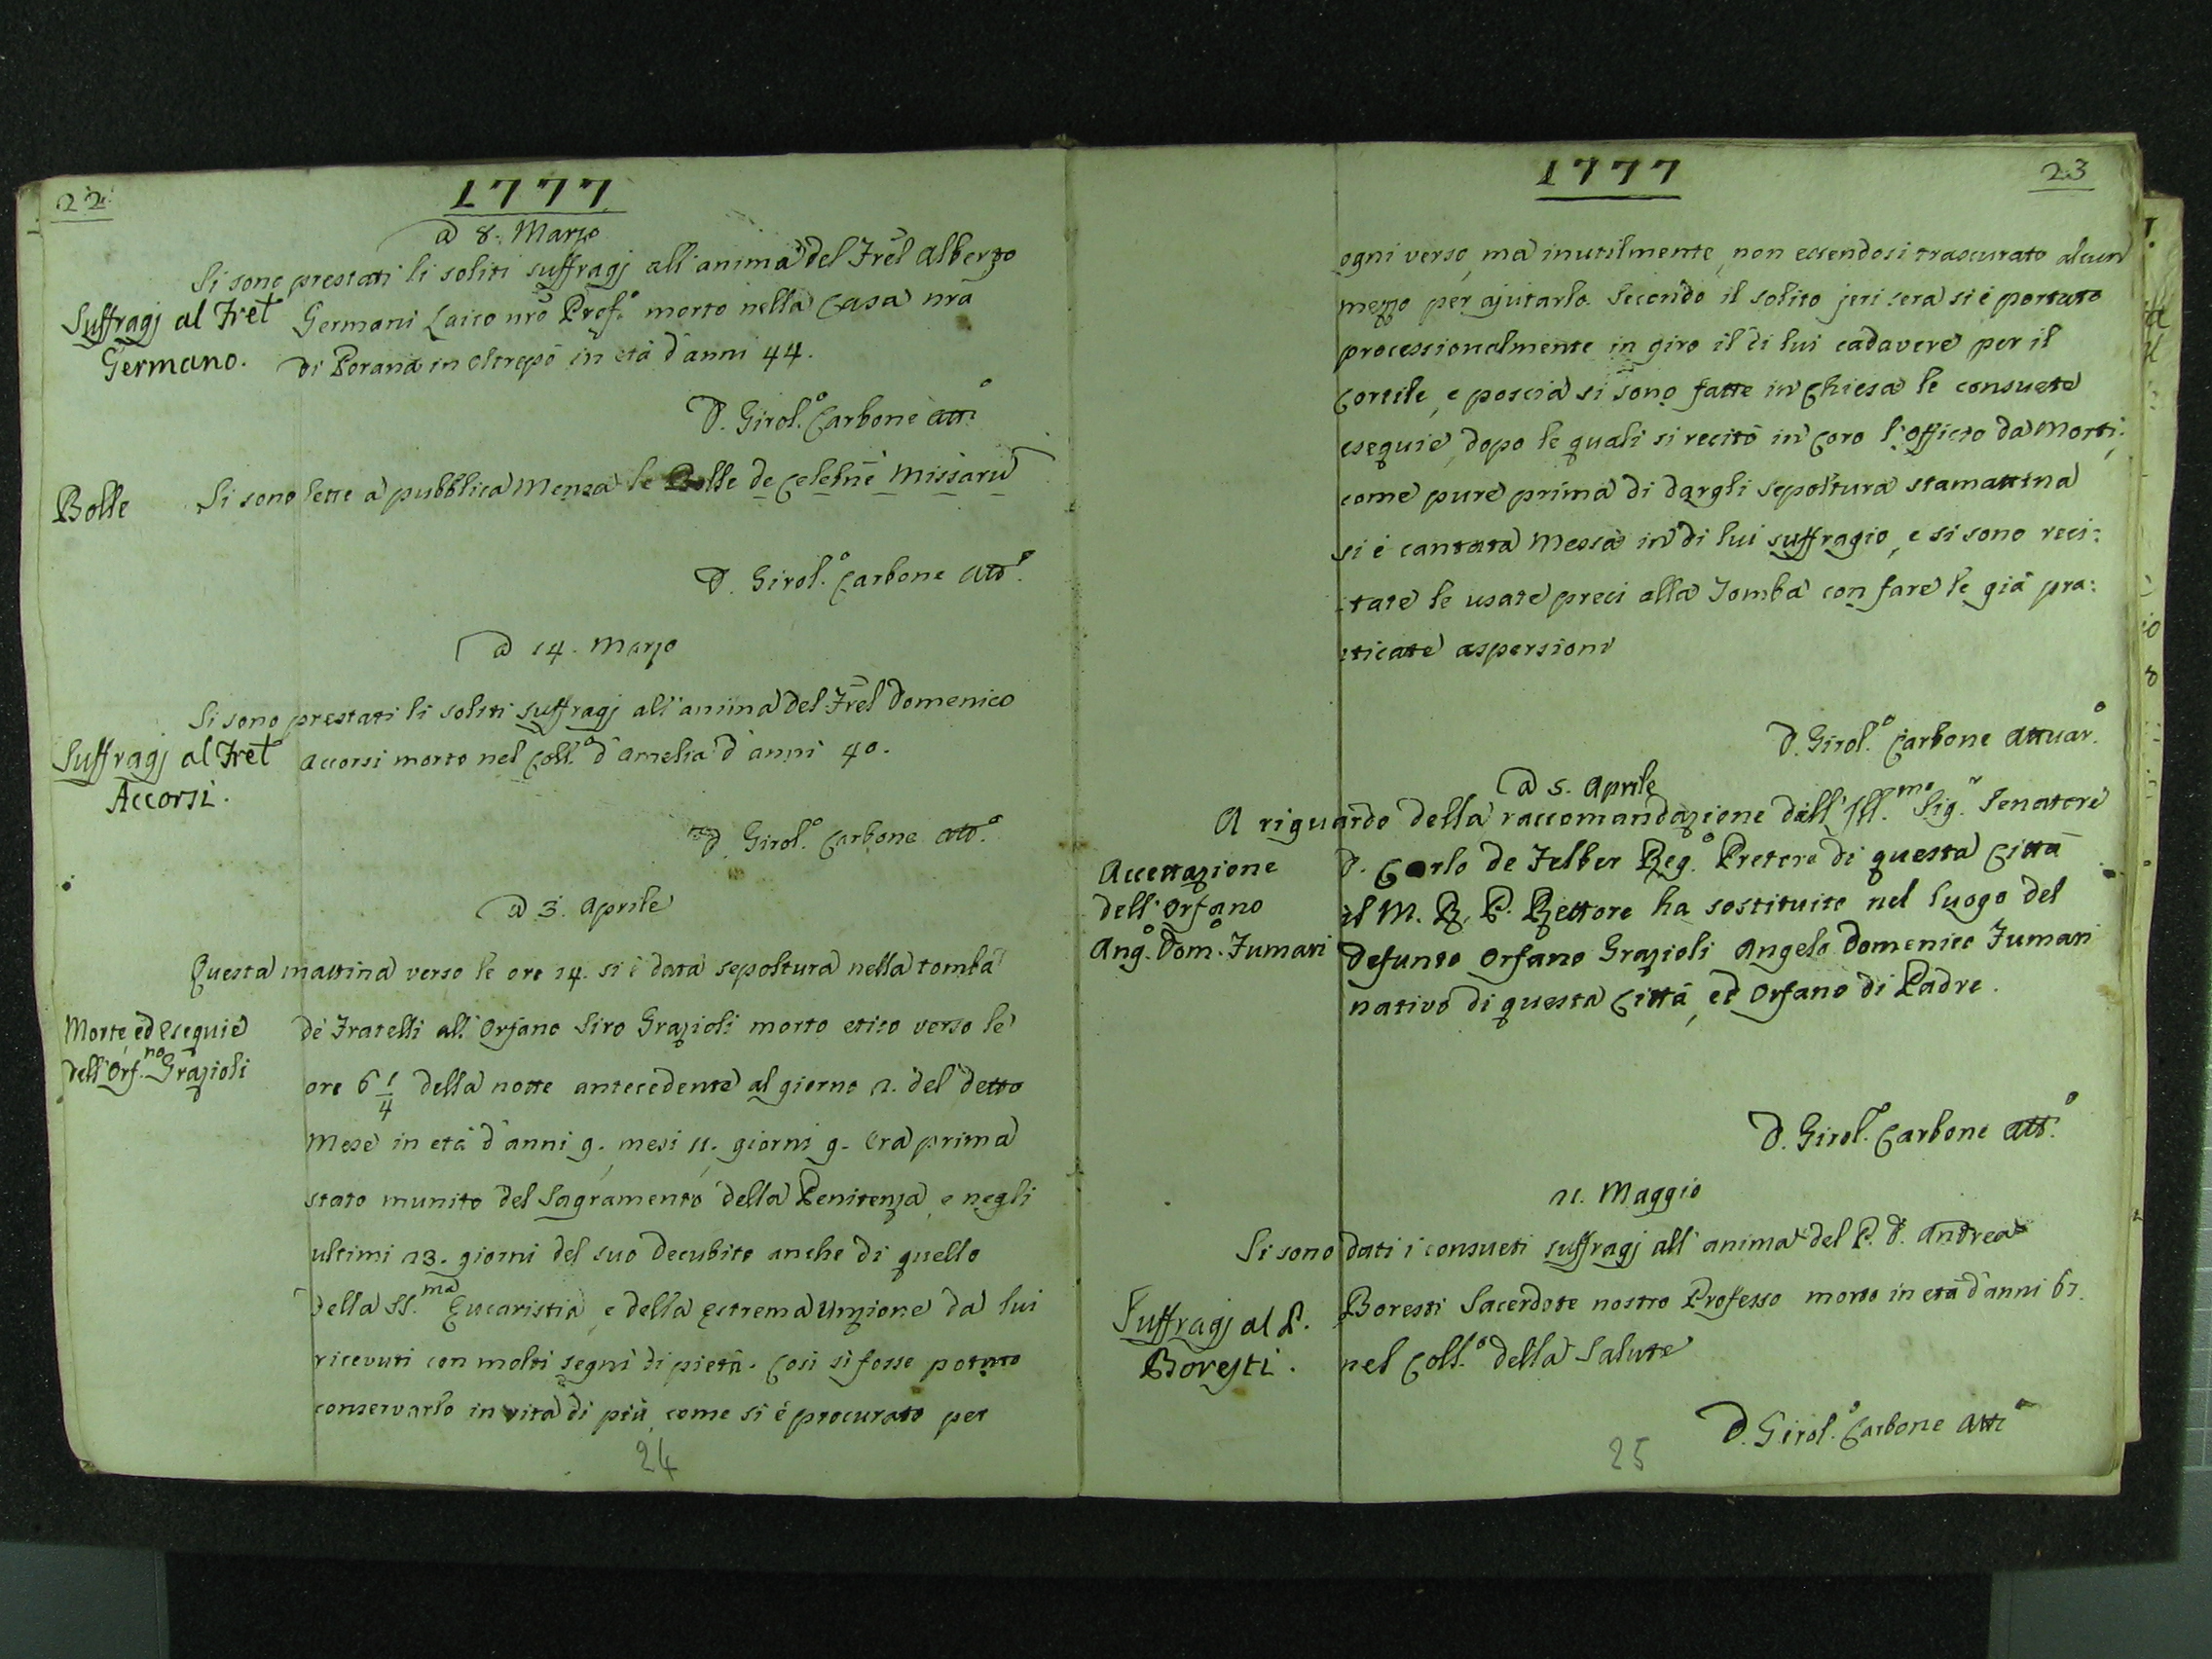 22.
1777
a 8. Marzo
Si sono prestati li soliti suffragj all'anima del Frēl Alberto
Suffragj al Fret.
Germano.
Germani Laico nrõ Prof.º morto nella Casa nrã
di Porana in Oltrepò in età d'anni 44.
D. Girol.º Carbone Att.º
Bolle
Si sono lette a pubblica Mensa le Bolle de Celebnē Missarū
D. Girol.º Carbone Att.º
a 14. Marzo
Si sono prestati li soliti suffragj all'anima del Frēl Domenico
Suffragj al Fret.
Accorsi.
Accorsi morto nel Coll.º d'Amelia d'anni 40.
D. Girol.º Carbone Att.º
a 3. Aprile
Questa mattina verso le ore 14. si è data sepoltura nella tomba
Morte, ed Esequie
dell'Orf.no Grazioli
de' Fratelli all'Orfano Siro Grazioli morto etico verso le
ore 6 1/4 della notte antecedente al giorno 2. del detto
Mese in età d'anni 9., mesi 11., giorni 9. Era prima
stato munito del Sagramento della Penitenza, e negli
ultimi 13. giorni del suo decubito anche di quello
della SS.ma Eucaristia, e della estrema Unzione da lui
ricevuti con molti segni di pietà. Così si fosse potuto
conservarlo in vita di più, come si è procurato per
24
1777
23
ogni verso, ma inutilmente, non essendosi trascurato alcun
mezzo per ajutarlo. Secondo il solito jeri sera si è portato
processionalmente in giro il di lui cadavere per il
Cortile, e poscia si sono fatte in Chiesa le consuete
esequie, dopo le quali si recitò in Coro l'Officio da Morti;
come pure prima di dargli sepoltura stamattina
si è cantata Messa in di lui suffragio, e si sono reci:
:tate le usate preci alla Tomba con fare le già pra:
:ticate aspersioni
D. Girol.º Carbone Attuar.º
a 5. Aprile
A riguardo della raccomandazione dell'Ill.mo Sig.r Senatore
Accettazione
dell'Orfano
Ang.º Dom.º Fumari
D. Carlo de Felber Reg.º Pretore di questa Città
il M. R. P. Rettore ha sostituito nel luogo del
defunto Orfano Grazioli Angelo Domenico Fumari
nativo di questa Città, ed Orfano di Padre.
D. Girol.º Carbone Att.º
21. Maggio
Si sono dati i consueti suffragj all'anima del P. D. Andrea
Suffragj al P.
Boresti.
Boresti Sacerdote nostro Professo morto in età d'anni 67.
nel Coll.º della Salute
D. Girol.º Carbone Att.º
25